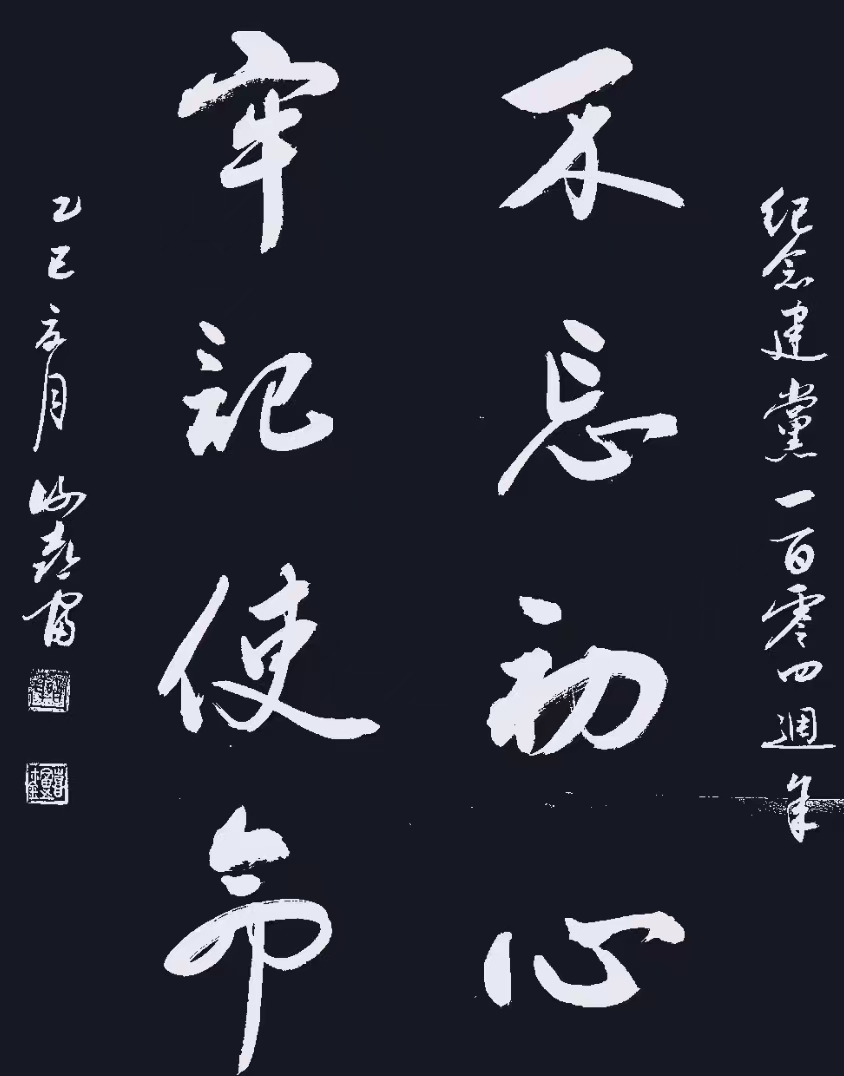 纪念建黨一百零四週年
不忘初心
牢记使命
乙巳亥月